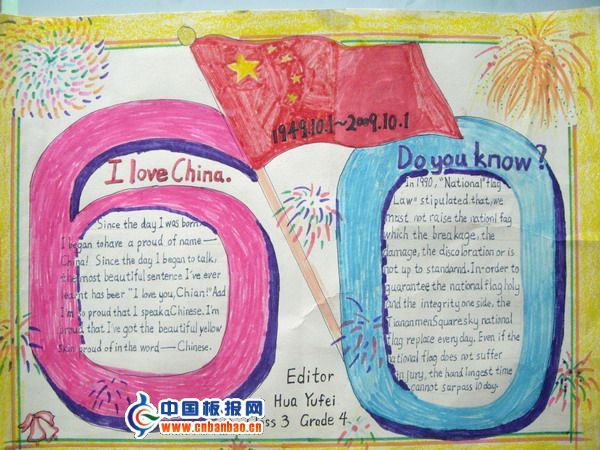 1949.10.1~2009.10.1
I love China.
Since the day I was born
I began to have a proud of name—
China! Since the day I began to talk,
the most beautiful sentence I've ever
learnt has beer "I love you, Chian!" Aad
I'm so proud that I speak a Chinese. I'm
proud that I've got the beautiful yellow
skin proud of in the word — Chinese.
Do you know?
In 1990, "National flag
Law" stipulated that, we
must not raise the nationl fag
which the breakage, the
damage, the discoloration or is
not up to standarnd. In order to
quarantee the national flag holy
and the integrity one side, the
Tiananmen Square sky national
flag replace every day. Even if the
national flag does not suffer
injury, the hand lingest time
cannot surpass 10 day.
Editor
Hua Yufei
ss 3 Grade 4
中国板报网
www.cnbanbao.cn